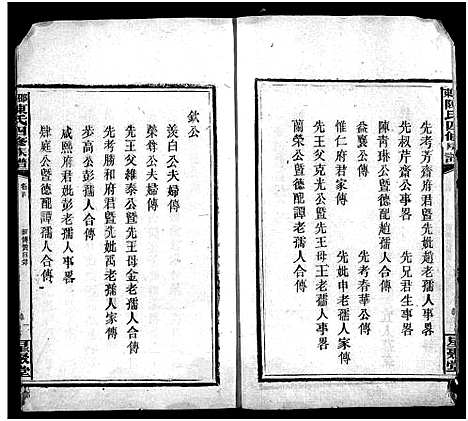 先考芳齋府君暨先妣趙老孺人事畧
先叔芹齋公事畧　先兄君生事畧
陳青琳公暨德配趙老孺人合傳
益襄公傳　先考春華公傳
惟仁府君家傳　先妣申老孺人家傳
先王父克光公暨先王母王老孺人事畧
蘭榮公暨德配譚老孺人合傳
欽公
羨白公夫婦傳
榮耸公夫婦傳
先王父維泰公暨先王母金老孺人合傳
先考勝和府君暨先妣萬老孺人家傳
步高公彭孺人合傳
咸熙府君妣彭老孺人事畧
肄庭公暨德配譚孺人合傳
陳氏四修族譜